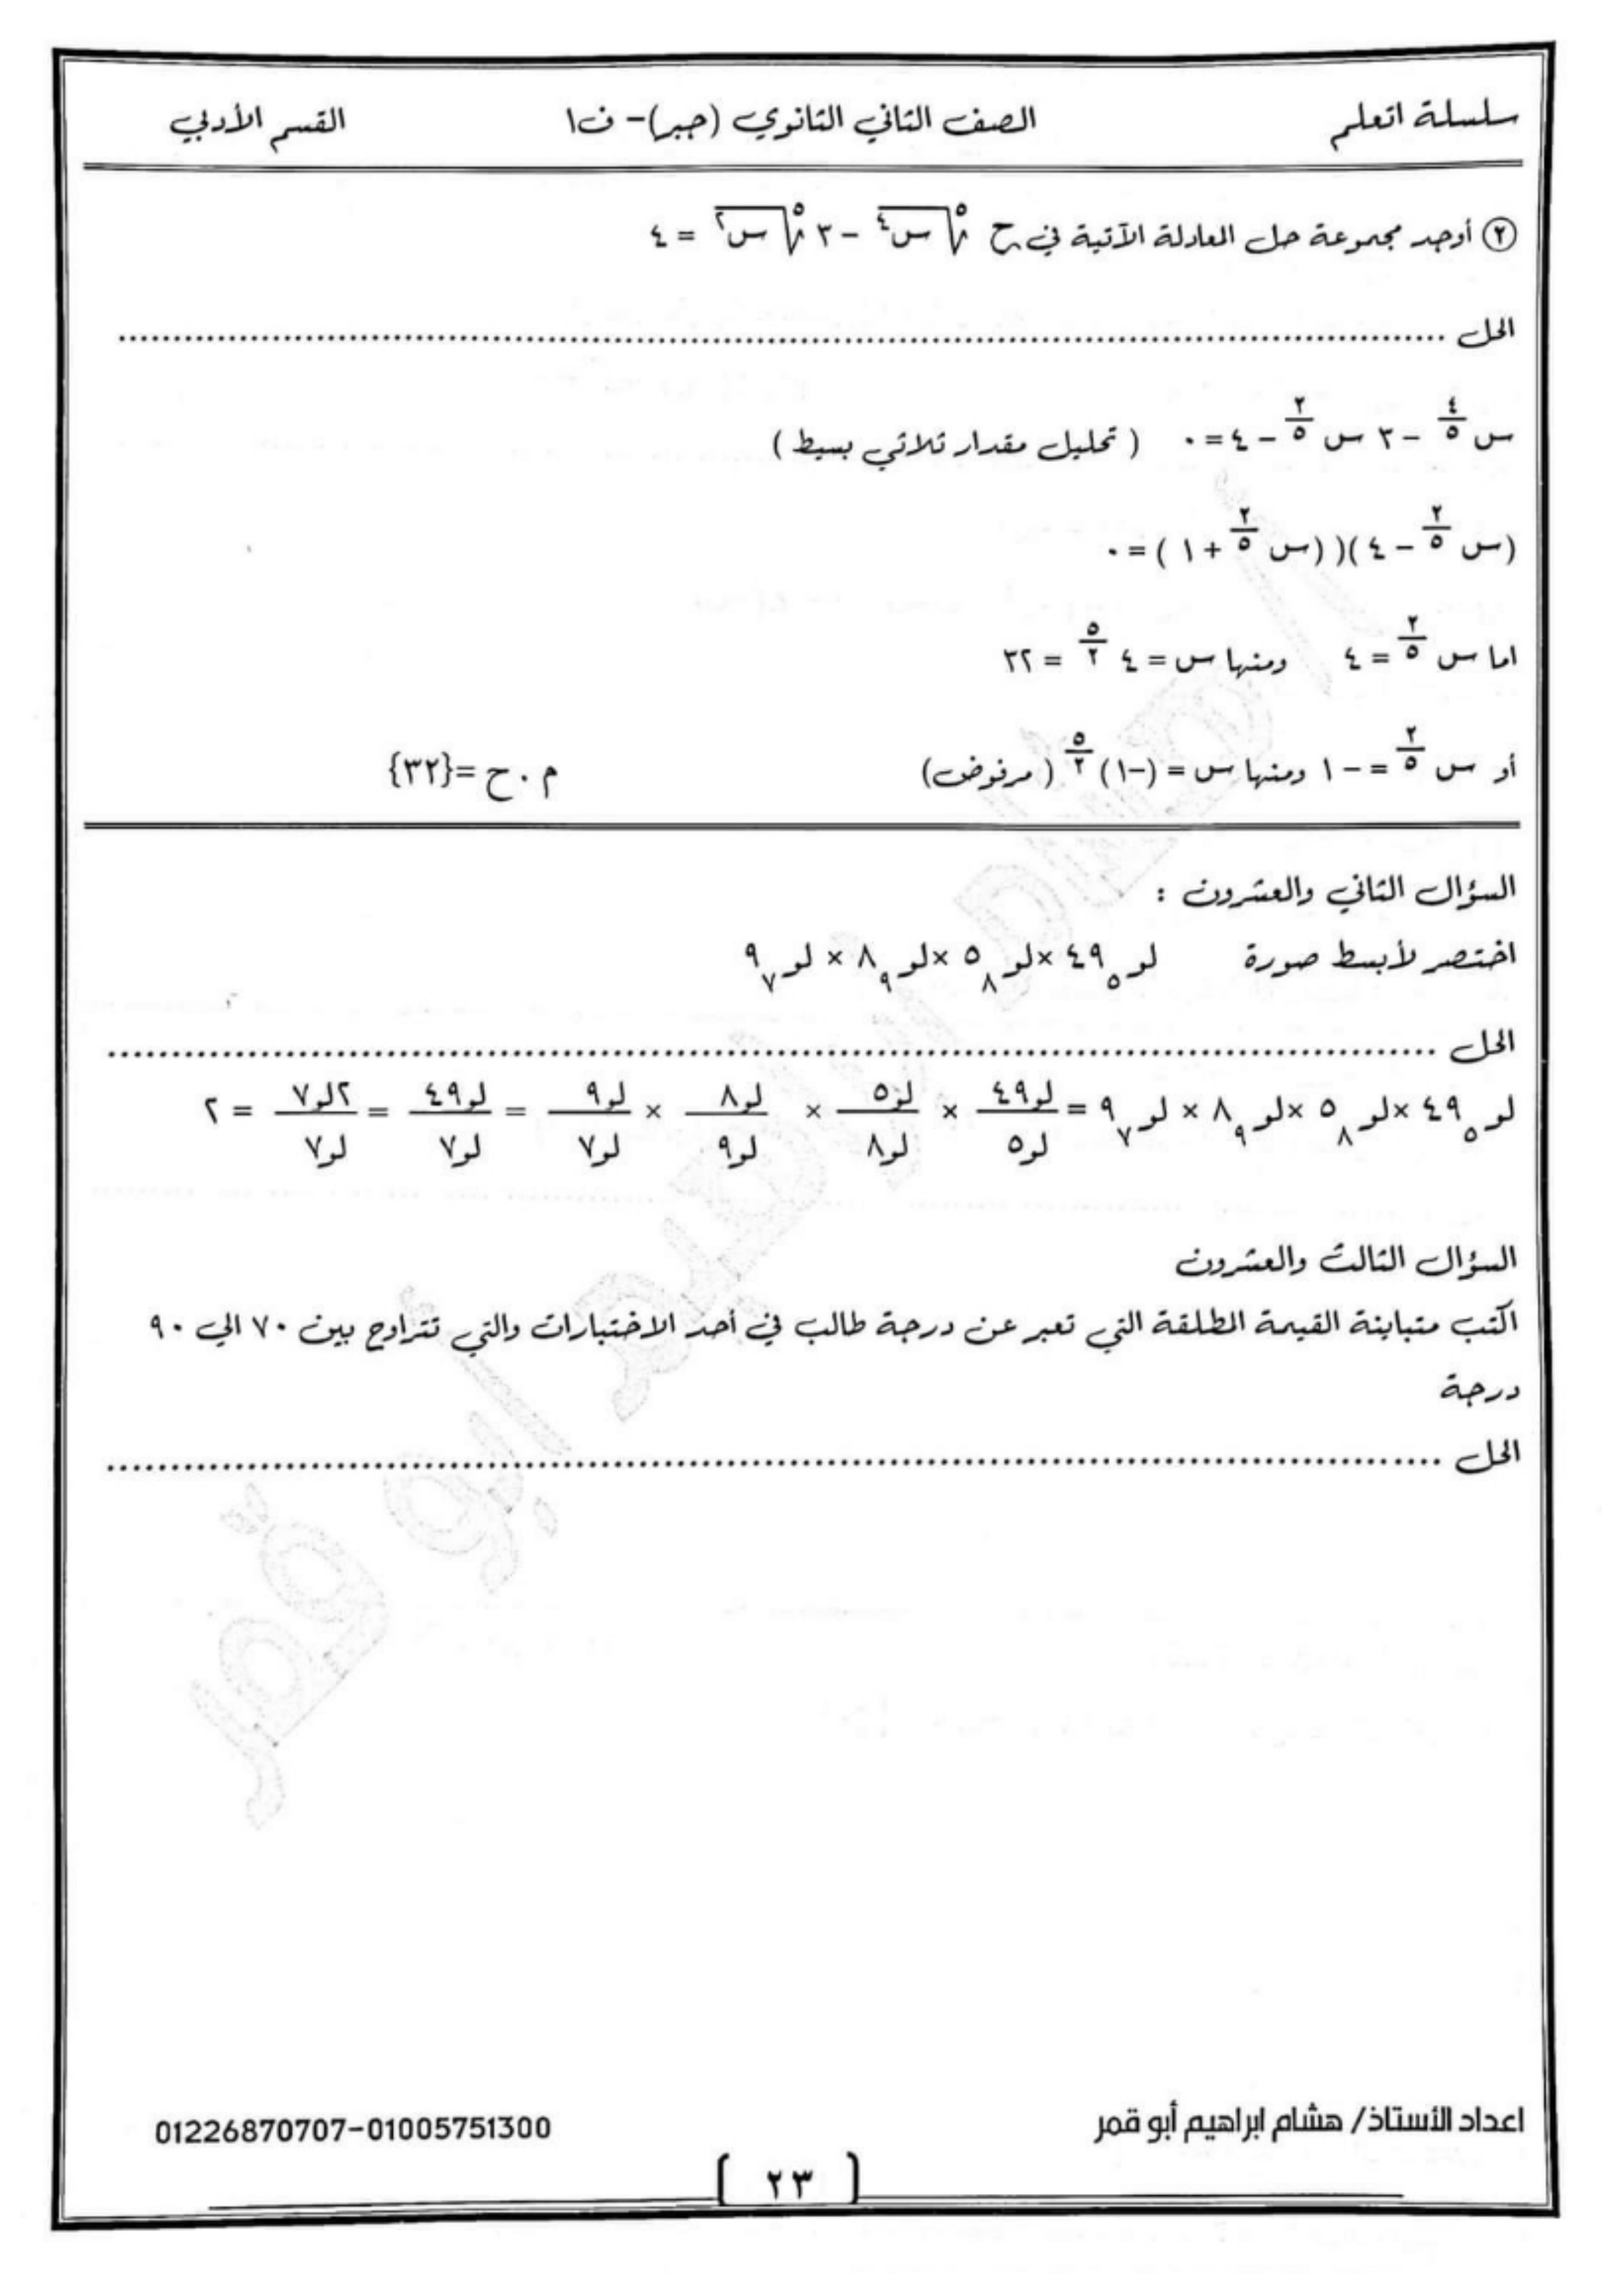 سلسلة اتعلم الصف الثاني الثانوي (جبر)– ف١ القسم الأدبي
② أوجد مجموعة حل المعادلة الآتية في ح ⁵√س⁴ – ٣ ⁵√س² = ٤
الحل ........................................
س^(٤/٥) – ٣ س^(٢/٥) – ٤ = ٠ ( تحليل مقدار ثلاثي بسيط )
(س^(٢/٥) – ٤ )( (س^(٢/٥) + ١ ) = ٠
اما س^(٢/٥) = ٤ ومنها س = ٤^(٥/٢) = ٣٢
أو س^(٢/٥) = – ١ ومنها س = (–١)^(٥/٢) ( مرفوض) م . ح = {٣٢}
السؤال الثاني والعشرون :
اختصر لأبسط صورة لو₅ ٤٩ × لو₈ ٥ × لو₉ ٨ × لو₇ ٩
الحل ........................................
لو₅ ٤٩ × لو₈ ٥ × لو₉ ٨ × لو₇ ٩ = لو٤٩/لو٥ × لو٥/لو٨ × لو٨/لو٩ × لو٩/لو٧ = لو٤٩/لو٧ = ٢لو٧/لو٧ = ٢
السؤال الثالث والعشرون
اكتب متباينة القيمة المطلقة التي تعبر عن درجة طالب في أحد الاختبارات والتي تتراوح بين ٧٠ الي ٩٠
درجة
الحل ........................................
اعداد الأستاذ/ هشام ابراهيم أبو قمر 01226870707-01005751300
[ ٢٣ ]